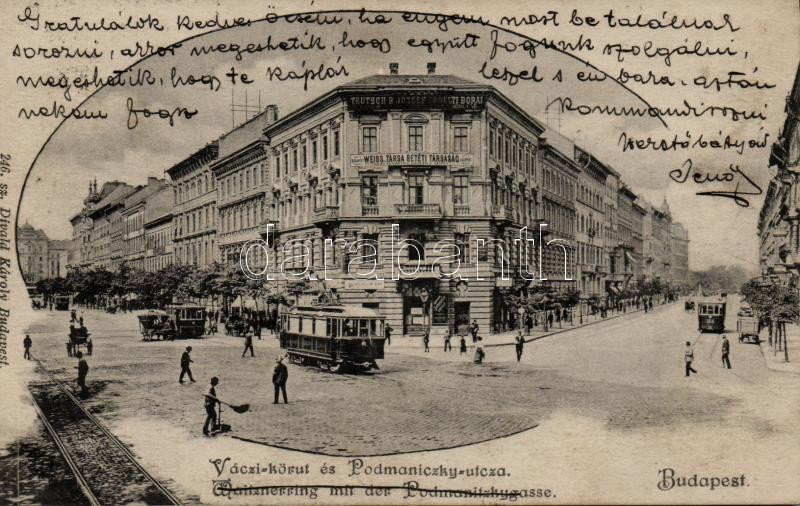 Gratulálok kedves öcsém, ha engem most be találnak
sorozni, akkor megeshetik, hogy együtt fogunk szolgálni,
megeshetik, hogy te káplár leszel s én baka, aztán
nekem fogsz kommandirozni
szerető bátyád
Jenő
TEUTSCH B. JÓZSEF ERDÉLYI BORAI
WEISS TÁRSA BETÉTI TÁRSASÁG
darabanth
246. sz. Divald Károly Budapest.
Váczi-körut és Podmaniczky-utcza.
Waitznerring mit der Podmanitzkygasse.
Budapest.